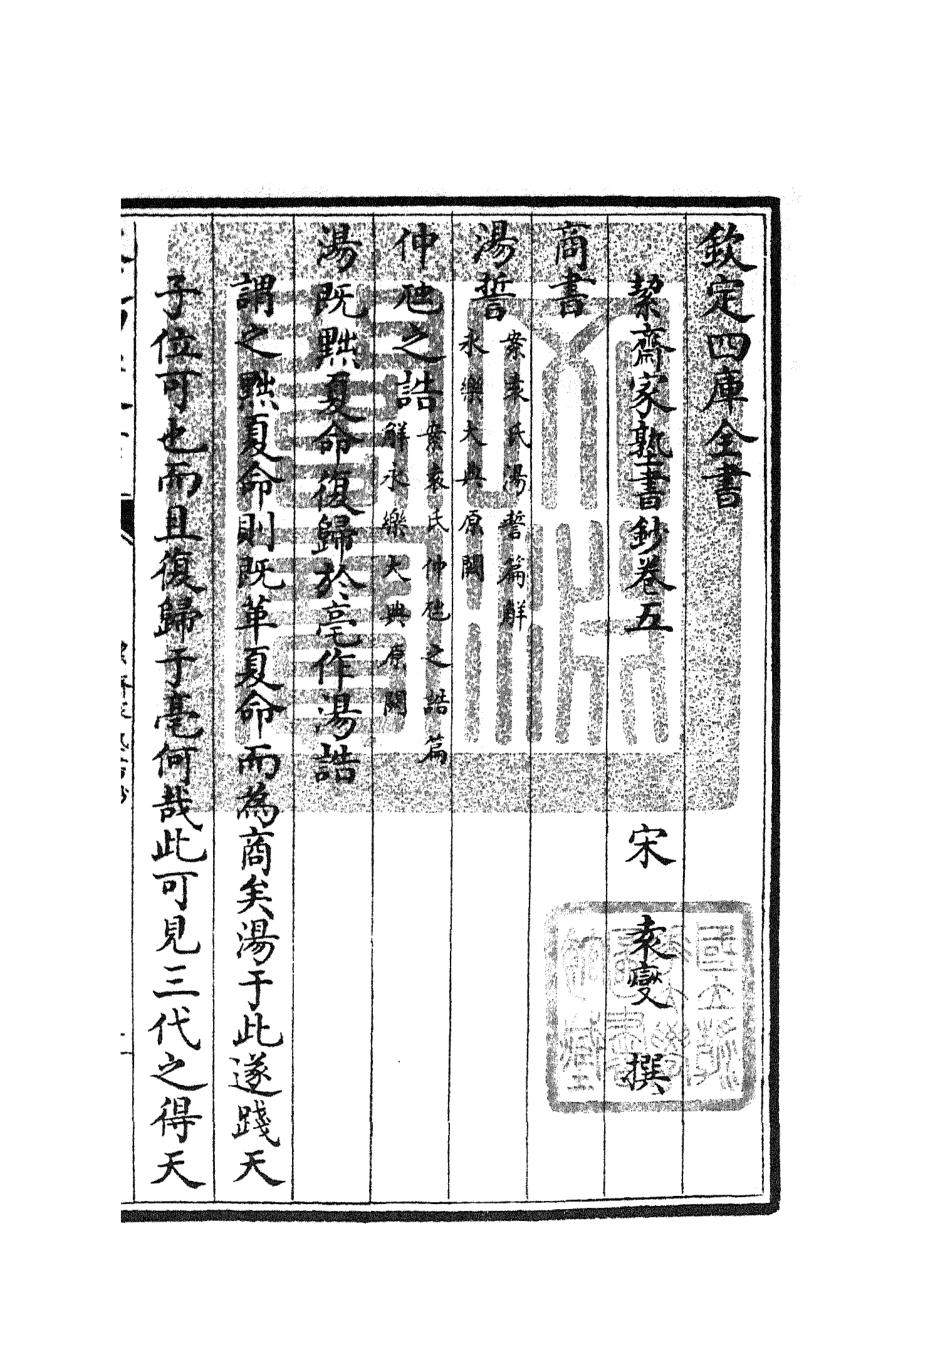 欽定四庫全書
絜齋家塾書鈔卷五
宋 袁燮 撰
商書
湯誓
案袁氏湯誓篇解
永樂大典原闕
仲虺之誥
案袁氏仲虺之誥篇
解永樂大典原闕
湯既黜夏命復歸於亳作湯誥
謂之黜夏命則既革夏命而為商矣湯于此遂踐天
子位可也而且復歸于亳何哉此可見三代之得天